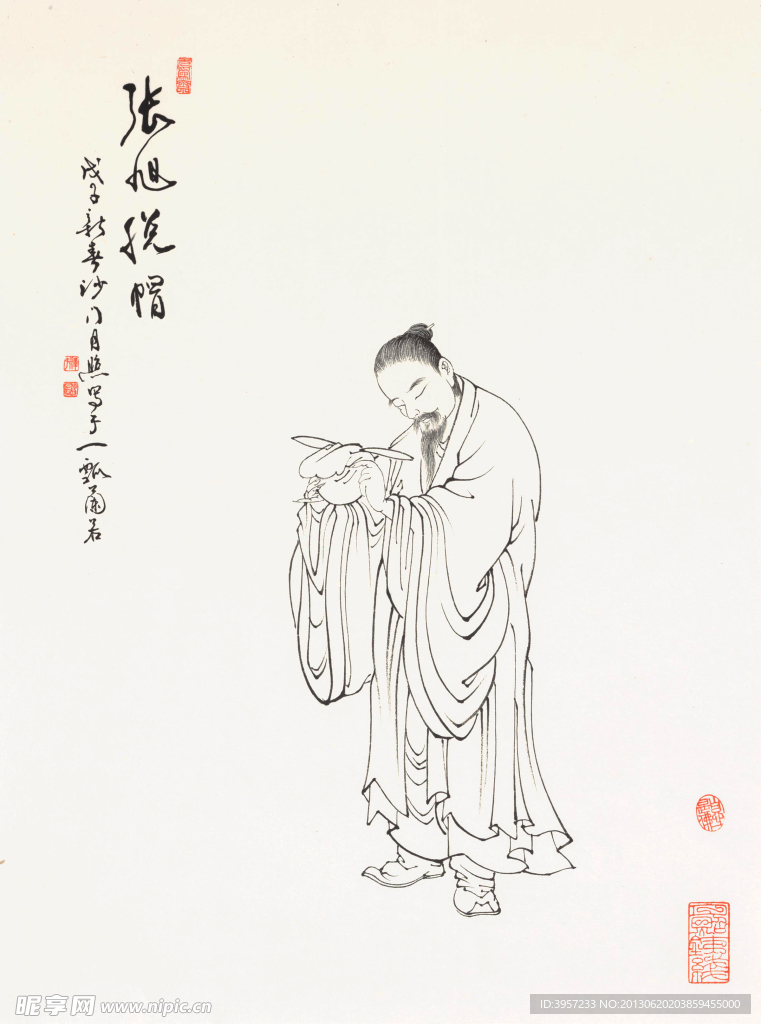 张旭脱帽
戊子新春沙门月照写于一瓢兰若
昵享网 www.nipic.cn
ID:3957233 NO:20130620203859455000